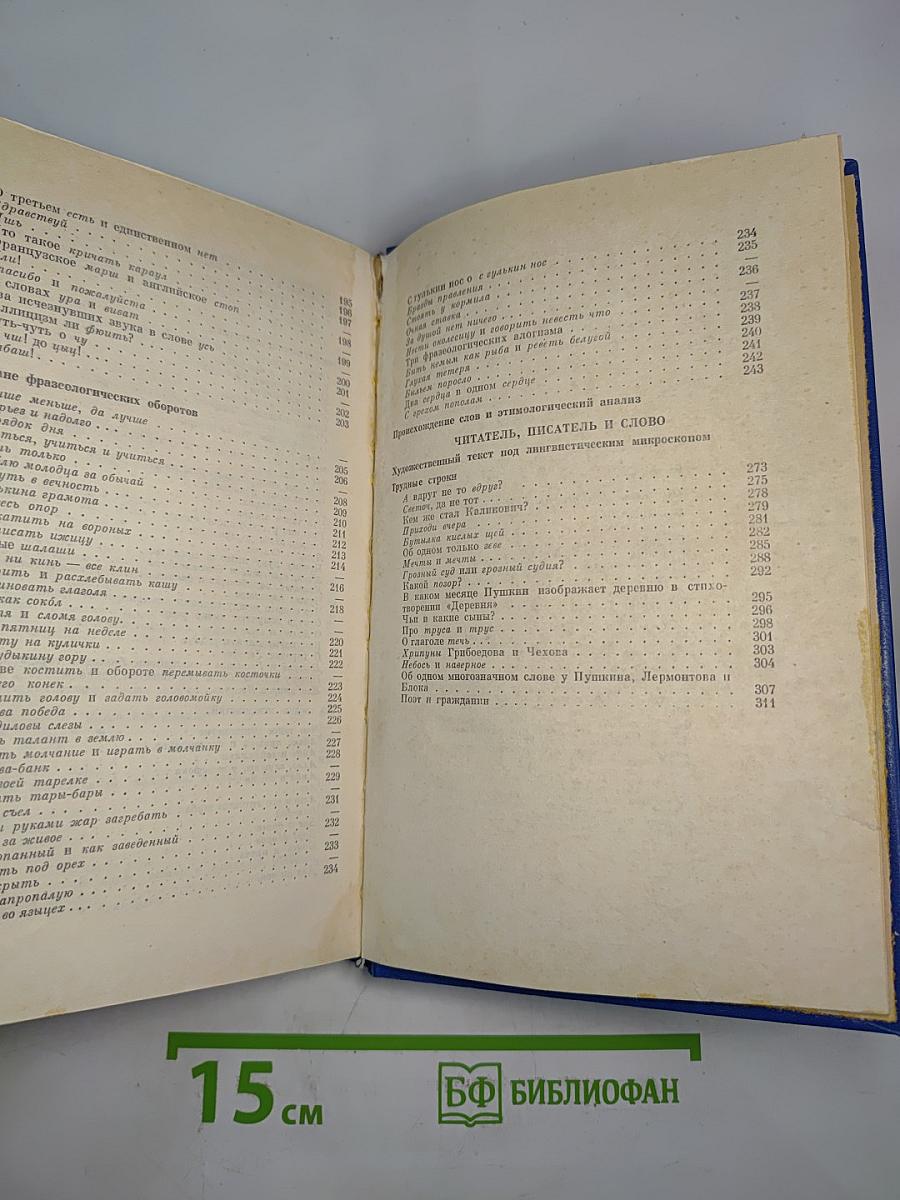 О третьем есть и единственном нет
Здравствуй
Ишь
то такое кричать караул
французское марш и английское стоп 195
ли! 196
спасибо и пожалуйста 197
словах ура и виват —
ва исчезнувших звука в слове усь 198
ллицизм ли фюить? —
уть-чуть о чу 199
чш! до цыц! —
баш! 200
201
не фразеологических оборотов
чше меньше, да лучше 202
рьез и надолго 203
рядок дня —
ться, учиться и учиться —
ь только 205
лю молодца за обычай 206
уть в вечность —
ькина грамота 208
есь опор 209
катить на вороных 210
писать ижицу 211
ые шалаши 212
ни кинь — все клин 213
рить и расхлебывать кашу 214
иновать глаголя —
как сокол 216
тя и сломя голову —
пятниц на неделе 218
ту на кулички —
удыкину гору 220
ве костить и обороте перемывать косточки 221
его конек 222
лить голову и задать головомойку —
ва победа 223
диловы слезы 224
ь талант в землю 225
ть молчание и играть в молчанку 226
ва-банк —
воей тарелке 227
ать тары-бары 228
съел —
и руками жар загребать 229
за живое —
опанный и как заведенный 231
ть под орех —
крыть 232
апропалую —
во языцех 233
—
234
С гулькин нос о с гулькин нос 234
Бразды правления 235
Стоять у кормила —
Очная ставка 236
За душой нет ничего —
Нести околесицу и говорить невесть что 237
Три фразеологических алогизма 238
Быть немым как рыба и реветь белугой 239
Глухая тетеря 240
Быльем поросло 241
Два сердца в одном сердце 242
С грехом пополам 243
Происхождение слов и этимологический анализ
ЧИТАТЕЛЬ, ПИСАТЕЛЬ И СЛОВО
Художественный текст под лингвистическим микроскопом
Трудные строки 273
А вдруг не то вдруг? 275
Светоч, да не тот 278
Кем же стал Калинович? 279
Приходи вчера 281
Бутылка кислых щей 282
Об одном только зеве 285
Мечты и мечты 288
Грозный суд или грозный судия? 292
Какой позор?
В каком месяце Пушкин изображает деревню в стихо-
творении «Деревня» 295
Чьи и какие сыны? 296
Про труса и трус 298
О глаголе течь 301
Хрипуны Грибоедова и Чехова 303
Небось и наверное 304
Об одном многозначном слове у Пушкина, Лермонтова и
Блока 307
Поэт и гражданин 311
15 см
БФ БИБЛИОФАН